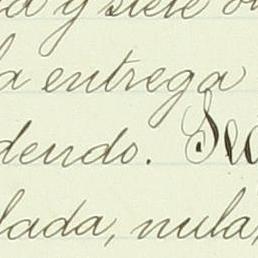 a y siete
a entrega
dendo. Sec
lada, nula,